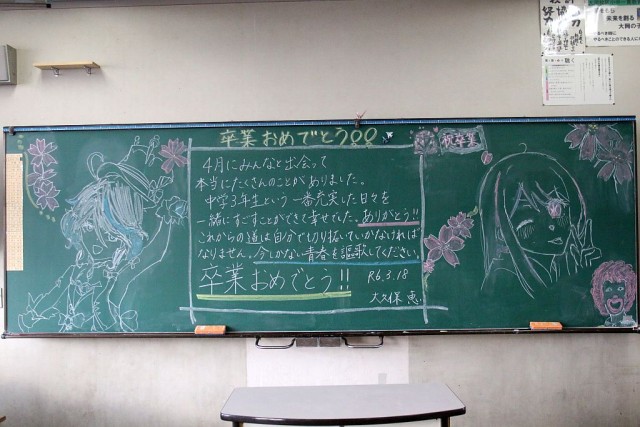 卒業おめでとう!!
祝卒業
4月にみんなと出会って
本当にたくさんのことがありました。
中学3年生という一番充実した日々を
一緒にすごすことができて幸せでした。ありがとう!!
これからの道は自分で切り拓いていかなければ
なりません。今しかない青春を謳歌してください。
卒業おめでとう!!
R6.3.18
大久保 恵
未来を創る
大岡の子